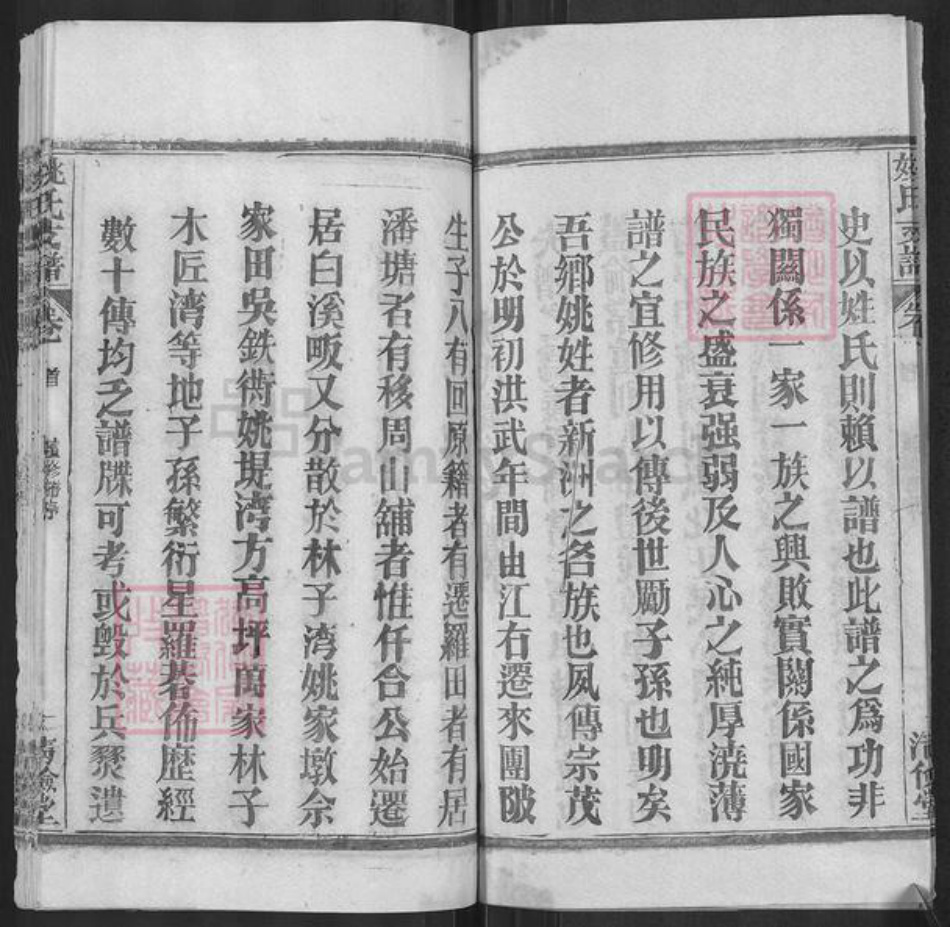 史以姓氏則賴以譜也此譜之爲功非
獨關係一家一族之興敗實關係國家
民族之盛衰强弱及人心之純厚澆薄
譜之宜修用以傳後世勵子孫也明矣
吾鄉姚姓者新洲之名族也夙傳宗茂
公於明初洪武年間由江右遷來團陂
生子八有回原籍者有遷羅田者有居
潘塘者有移周山舖者惟仟合公始遷
居白溪畈又分散於林子湾姚家墩佘
家田吳鉄衖姚垷湾方高坪萬家林子
木匠湾等地子孫繁衍星羅碁佈歷經
數十傳均乏譜牒可考或毀於兵燹遺
姚氏支譜 卷
首
清儉堂
FamilySearch